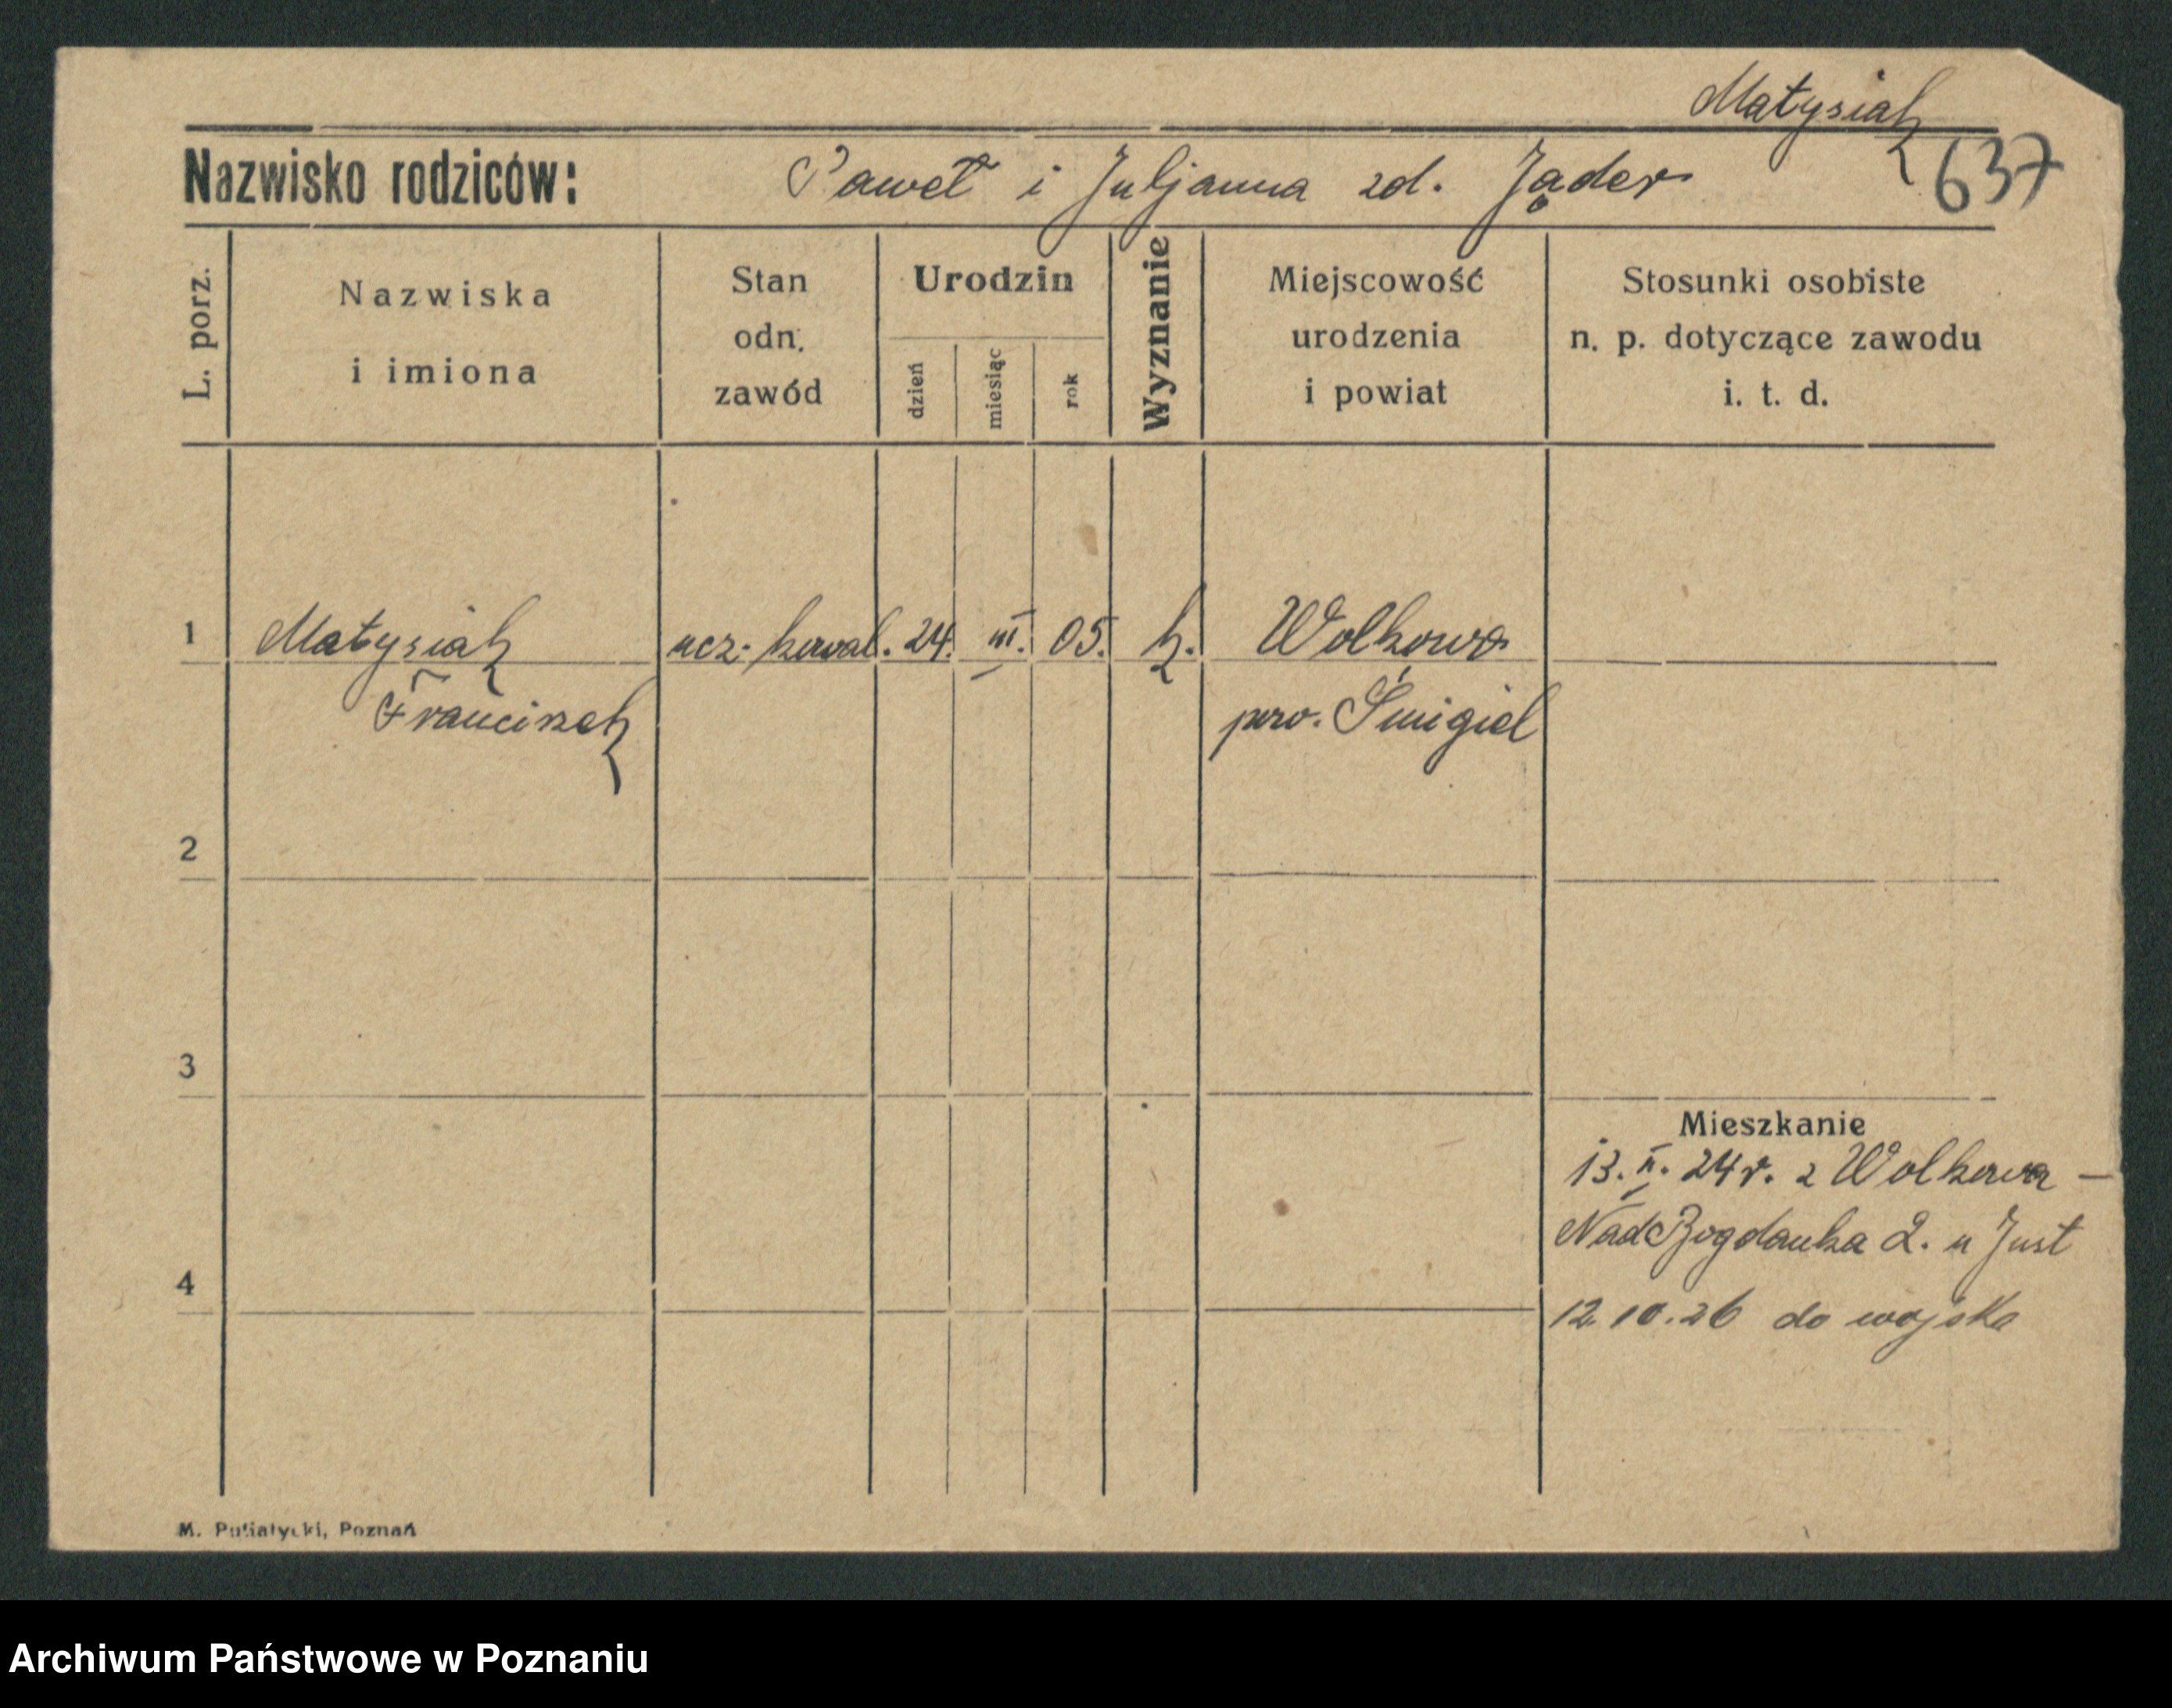 Matysiak
637
Nazwisko rodziców: Paweł i Juljanna zd. Jąder
L. porz.
Nazwiska
i imiona
Stan
odn.
zawód
Urodzin
dzień
miesiąc
rok
Wyznanie
Miejscowość
urodzenia
i powiat
Stosunki osobiste
n. p. dotyczące zawodu
i. t. d.
1 Matysiak ucz. kowal. 24. III. 05. k. Wolkowo
Franciszek pow. Śmigiel
2
3
Mieszkanie
13. II. 24 r. z Wolkowa —
Nad Bogdanka 2. u Just
4
12. 10. 26 do wojska
M. Putiatycki, Poznań
Archiwum Państwowe w Poznaniu